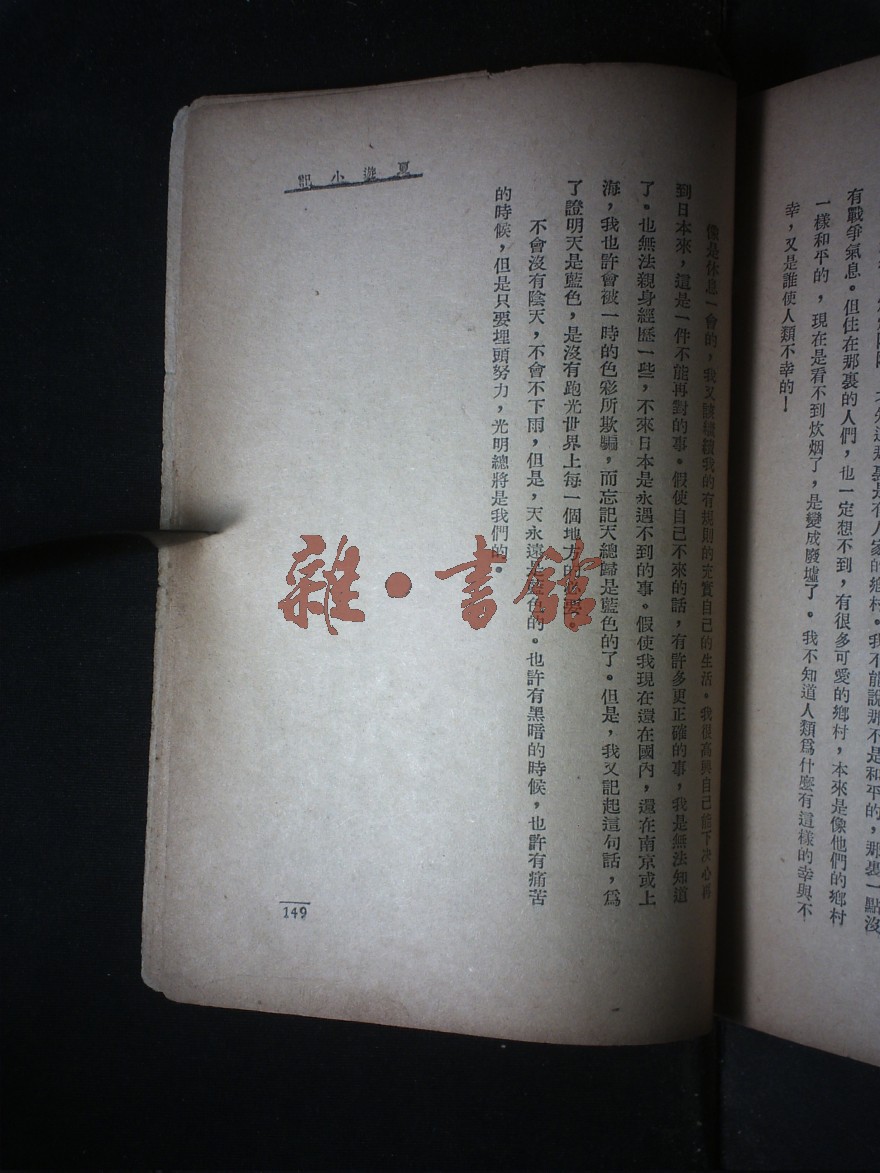 有戰爭氣息。但住在那裏的人們，也一定想不到，有很多可愛的鄉村，本來是像他們的鄉村
一樣和平的，現在是看不到炊烟了，是變成廢墟了。我不知道人類爲什麼有這樣的幸與不
幸，又是誰使人類不幸的！
夏遊小記
像是休息一會的，我又該繼續我的有規則的充實自己的生活。我很高興自己能下決心再
到日本來，這是一件不能再對的事。假使自己不來的話，有許多更正確的事，我是無法知道
了。也無法親身經歷一些，不來日本是永遇不到的事。假使我現在還在國內，還在南京或上
海，我也許會被一時的色彩所欺騙，而忘記天總歸是藍色的了。但是，我又記起這句話，爲
了證明天是藍色，是沒有跑光世界上每一個地方的必要。
不會沒有陰天，不會不下雨，但是，天永遠是藍色的。也許有黑暗的時候，也許有痛苦
的時候，但是只要埋頭努力，光明總將是我們的。
149
雜·書館